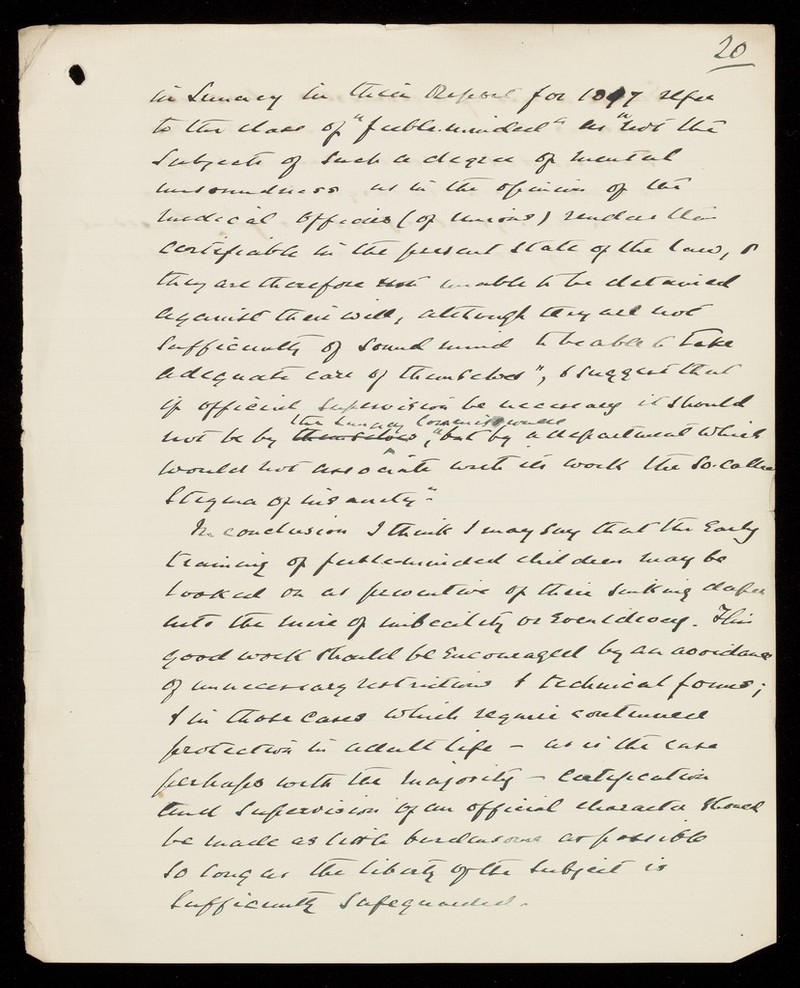 20
in Lunacy in their Report for 1897 refer
to the class of "feeble-minded" as "not the
subjects of such a degree of mental
unsoundness as in the opinion of the
medical officers (of unions) renders them
certifiable in the present state of the law, &
they are therefore unable to be detained
against their will, although they are not
sufficiently of sound mind to be able to take
adequate care of themselves", & suggest that
if official supervision be necessary it should
the Lunacy Commissioners
not be by themselves, "but by a department which
would not associate with its work the so-called
stigma of insanity".
In conclusion I think I may say that the early
training of feeble-minded children may be
looked on as preventive of their sinking deeper
into the mire of imbecility or even idiocy. This
good work should be encouraged by an avoidance
of unnecessary restrictions & technical forms;
& in those cases which require continued
protection in adult life - as is the case
perhaps with the majority - certification
and supervision of an official character should
be made as little burdensome as possible
so long as the liberty of the subject is
sufficiently safeguarded.